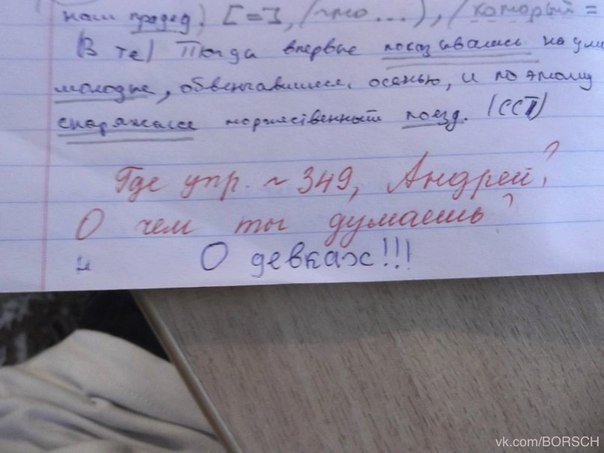 наш прадед, [=], (что...), (который =
(В те) Тогда впервые показывались на ули
молодые, обвенчавшиеся осенью, и поэтому
снаряжался торжественный поезд. (ССП)
Где упр. ~ 349, Андрей?
О чем ты думаешь?
О девках!!!
vk.com/BORSCH